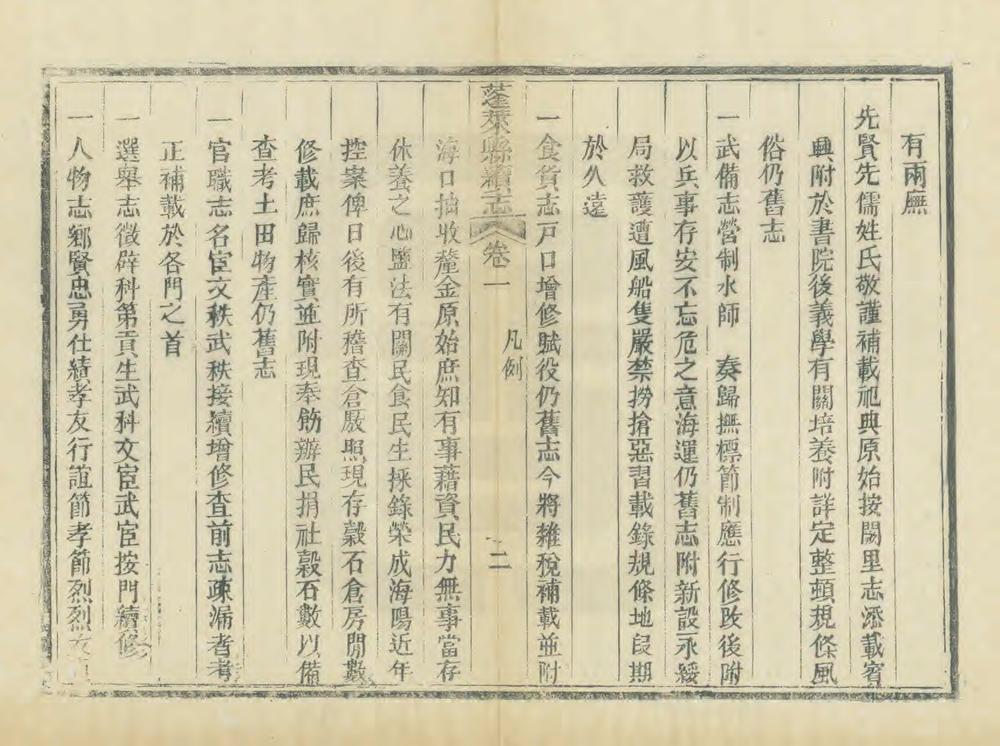 有兩廡
先賢先儒姓氏敬謹補載祀典原始按闕里志添載賓
興附於書院後義學有關培養附詳定整頓規條風
俗仍舊志
一武備志營制水師 奏歸撫標節制應行修改後附
以兵事存安不忘危之意海運仍舊志附新設永綏
局救護遭風船隻嚴禁撈搶惡習載錄規條地段期
於久遠
一食貨志戸口增修賦役仍舊志今將雜稅補載並附
蓬萊縣續志 卷一 凡例 二
海口抽收釐金原始庶知有事藉資民力無事當存
休養之心鹽法有關民食民生採錄榮成海陽近年
控案俾日後有所稽查倉厫照現存穀石倉房閒數
修載庶歸核實並附現奉飭辦民捐社穀石數以備
查考土田物產仍舊志
一官職志名宦文秩武秩接續增修查前志疎漏者考
正補載於各門之首
一選舉志徵辟科第貢生武科文宦武宦按門續修
一人物志鄉賢忠勇仕績孝友行誼節孝節烈烈女